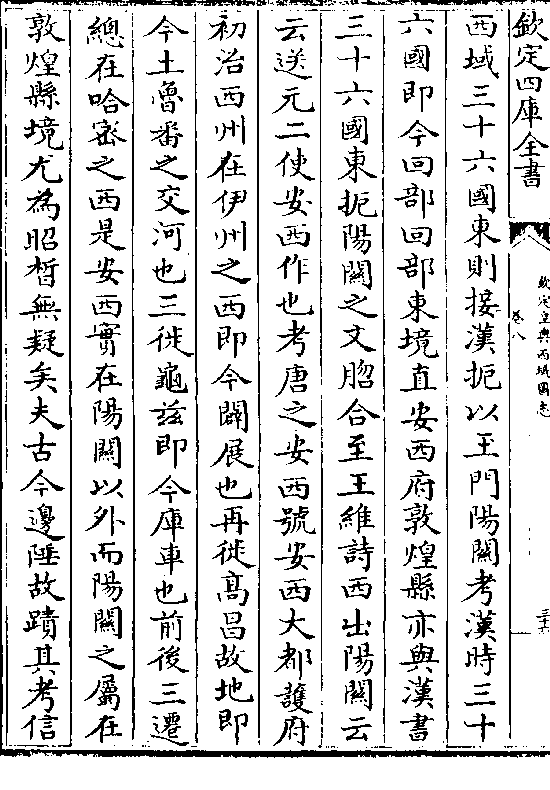 欽定四庫全書
欽定皇輿西域圖志
卷八
三十六
西域三十六國東則接漢扼以玉門陽關考漢時三十
六國即今回部回部東境直安西府敦煌縣亦與漢書
三十六國東扼陽關之文脗合至王維詩西出陽關云
云送元二使安西作也考唐之安西號安西大都護府
初治西州在伊州之西即今闢展也再徙高昌故地即
今土魯番之交河也三徙龜兹即今庫車也前後三遷
總在哈宻之西是安西實在陽關以外而陽關之屬在
敦煌縣境尤為昭晳無疑矣夫古今邊陲故蹟其考信